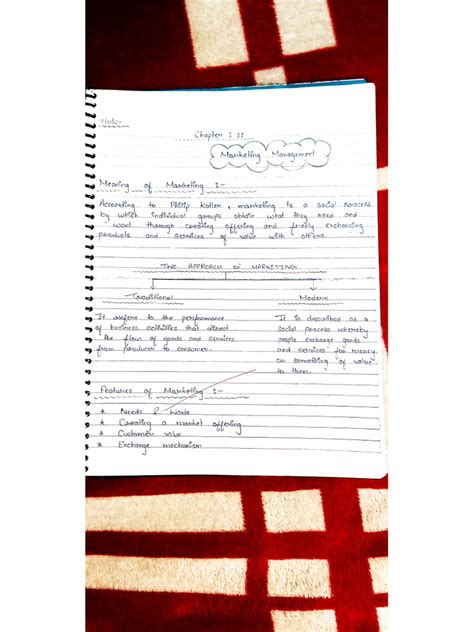 Chapter : 11
Marketing Management
Meaning of Marketing :-
According to Philip Kotler, marketing is a social process
by which individual groups obtain what they need and
want through creating offering and freely exchanging
products and services of value with others.
TWO APPROACH OF MARKETING
Traditional
Modern
It refers to the performance
of business activities that direct
the flow of goods and services
from producer to consumer.
It is described as a
social process whereby
people exchange goods
and services for money
or something of value
to them.
Features of Marketing :-
* Needs & Wants
* Creating a market offering
* Customer value
* Exchange mechanism